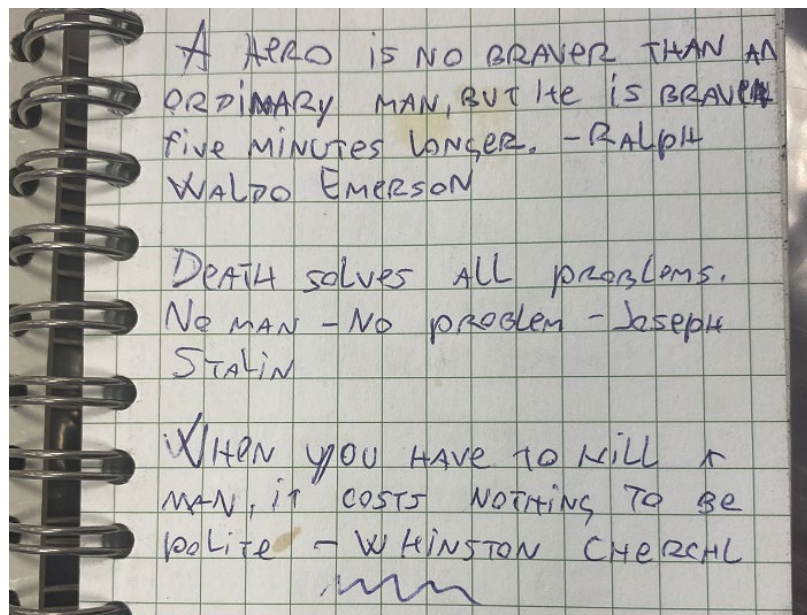 A HERO IS NO BRAVER THAN AN
ORDINARY MAN, BUT He is BRAVER
five MINUTES LONGER. - RALPH
WALDO EMERSON
DEATH solves ALL pROBLEMS.
No MAN - No pROBLEM - Joseph
STALIN
WHEN YOU HAVE TO KILL A
MAN, iT COSTS NOTHING TO Be
poLiTe - WHINSTON CHERCHL